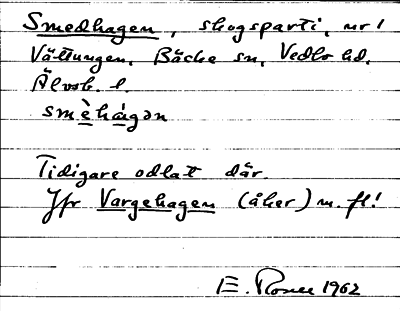 Smedhagen, skogsparti, nr 1
Vättungen, Bäcke sn, Vedbo hd.
Älvsb. l.
smèhágən
Tidigare odlat där.
Jfr Vargehagen (åker) m. fl!
E. 1962